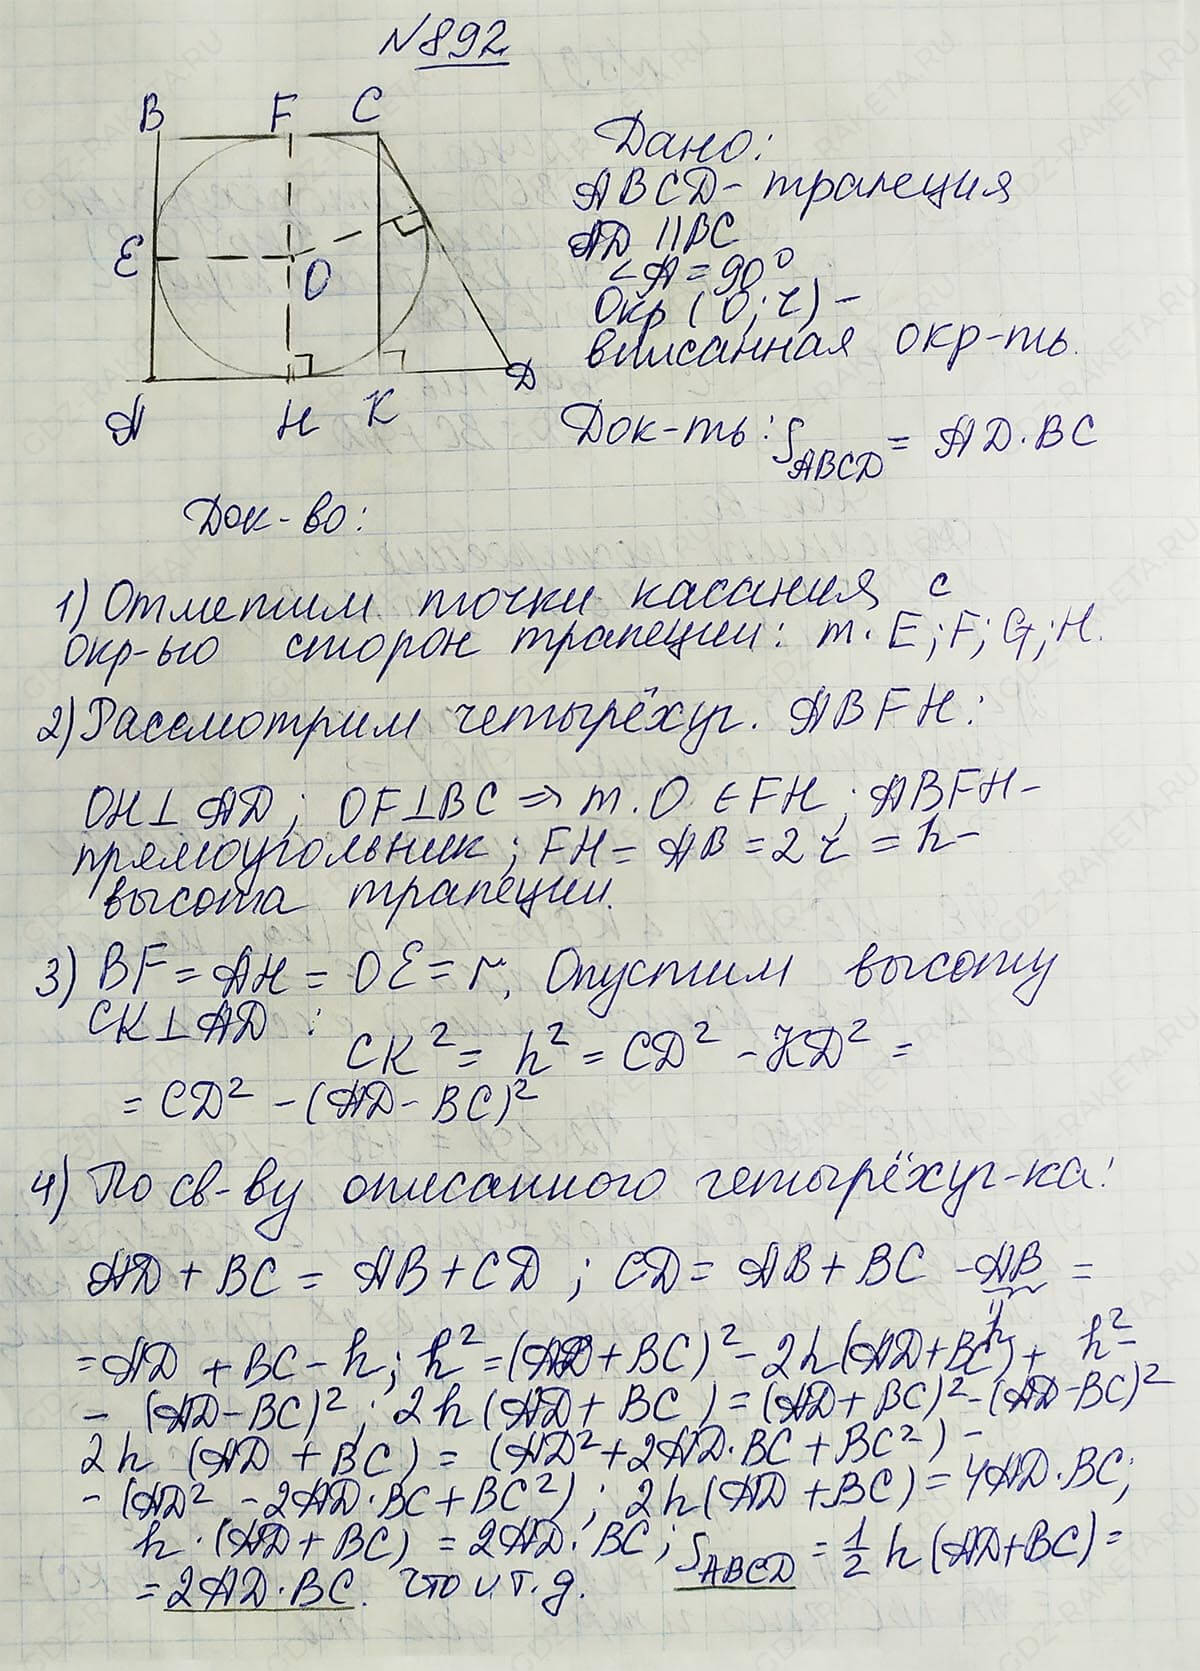 №892
B F C
E O
A H K D
Дано:
ABCD - трапеция
AD || BC
∠A = 90°
Окр (O; r) -
вписанная окр-ть.
Док-ть: S_ABCD = AD·BC
Док-во:
1) Отметим точки касания с
окр-ью сторон трапеции: т. E; F; G; H.
2) Рассмотрим четырёхуг. ABFH:
OH⊥AD; OF⊥BC ⇒ т. O ∈ FH; ABFH -
прямоугольник; FH = AB = 2r = h -
высота трапеции.
3) BF = AH = OE = r. Опустим высоту
CK⊥AD :
CK² = h² = CD² - KD² =
= CD² - (AD - BC)²
4) По св-ву описанного четырёхуг-ка:
AD + BC = AB + CD ; CD = AB + BC - AB =
h
= AD + BC - h; h² = (AD + BC)² - 2h(AD+BC) + h² -
- (AD-BC)²; 2h(AD + BC) = (AD + BC)² - (AD-BC)²
2h (AD + BC) = (AD² + 2AD·BC + BC²) -
- (AD² - 2AD·BC + BC²) ; 2h(AD + BC) = 4AD·BC;
h·(AD + BC) = 2AD·BC; S_ABCD = 1/2 h(AD+BC) =
= 2AD·BC. что и т.д.
GDZ-RAKETA.RU